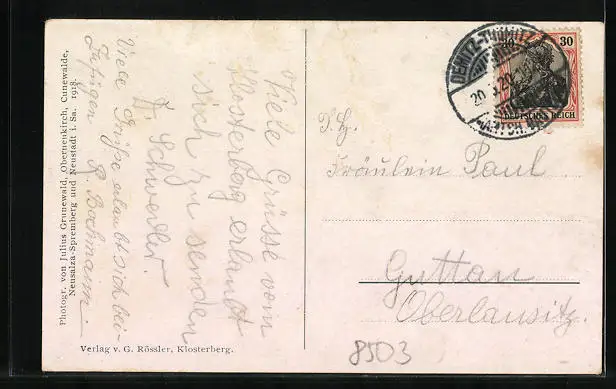 Photogr. von Julius Grunewald, Oberneukirch, Cunewalde,
Neusalza-Spremberg und Neustadt i. Sa. 1918.
Viele Grüße erlaubt sich bei-
R. Bachmann.
Viele Grüsse vom
Klosterberg erlaubt
sich zu senden
Verlag v. G. Rössler, Klosterberg.
DEMITZ-THUMITZ
20
30 30
DEUTSCHES REICH
Fräulein Paul
Guttau
Oberlausitz.
8503